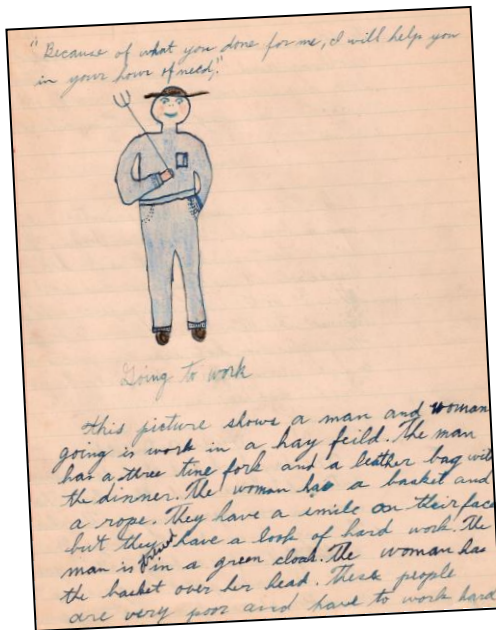 "Because of what you done for me, I will help you
in your hour of need,"
Going to work
This picture shows a man and woman
going is work in a hay feild. The man
has a three tine fork and a leather bag wit
the dinner. The woman has a basket and
a rope. They have a smile on their face
but they have a look of hard work. The
man is in a green cloak. The woman has
the basket over her head. These people
are very poor and have to work hard